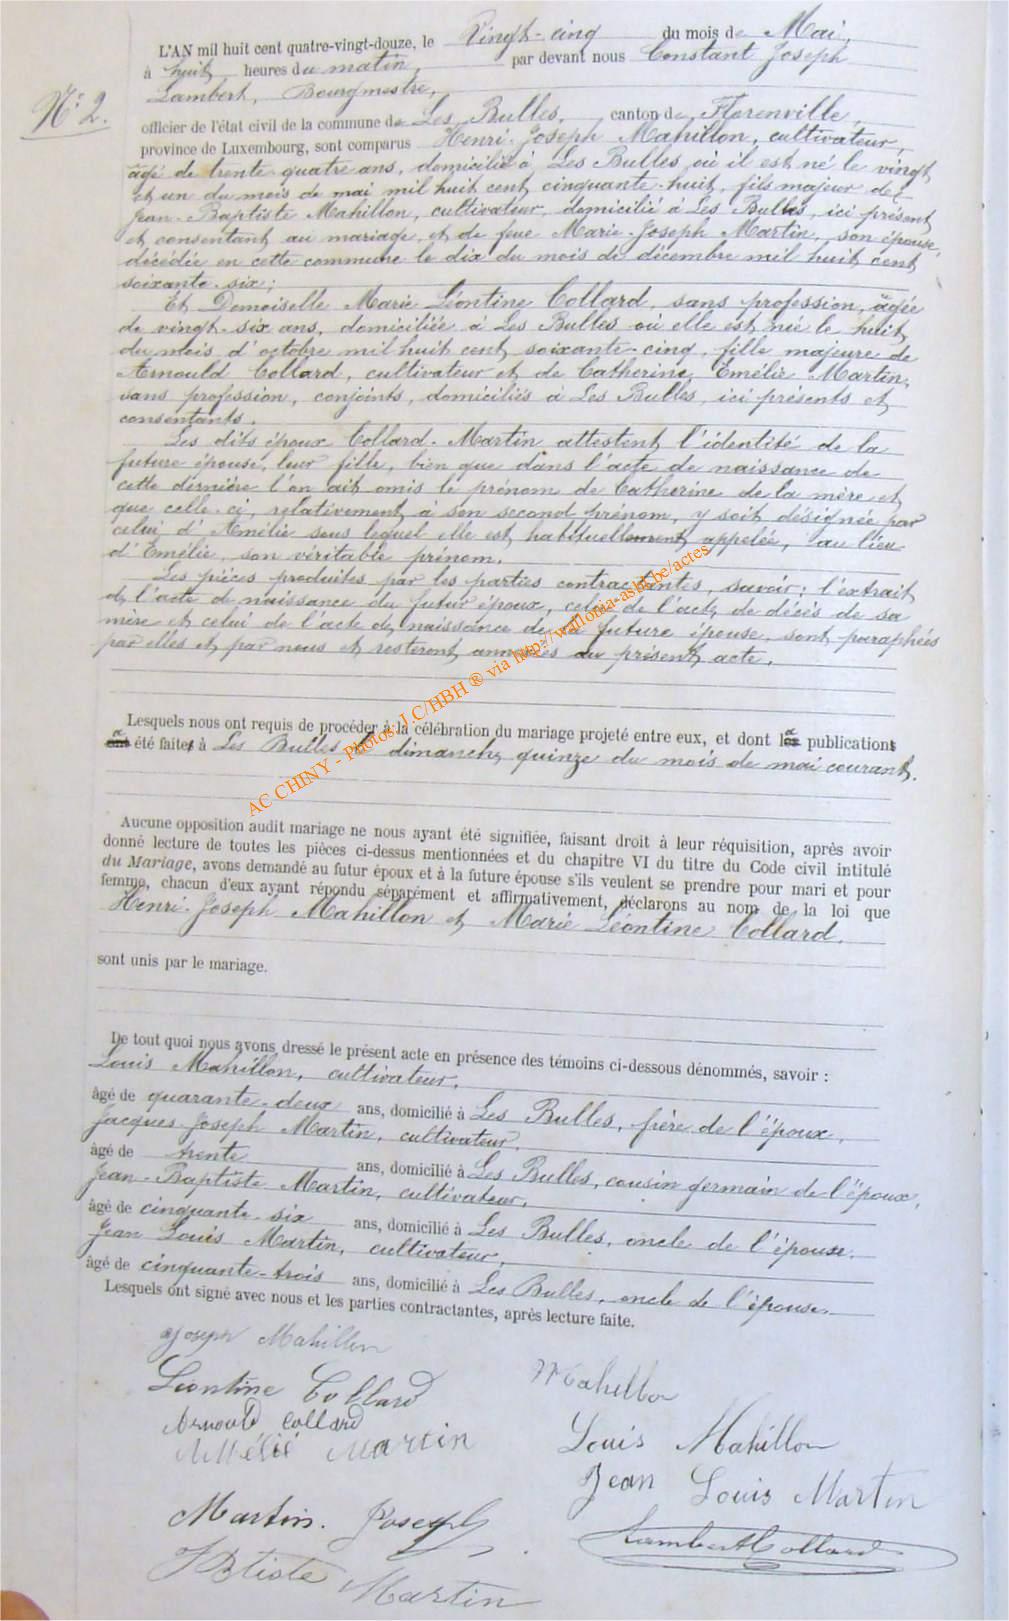 L'AN mil huit cent quatre-vingt-douze, le Vingt-cinq du mois de Mai,
à huit heures du matin, par devant nous Constant Joseph
Lambert, Bourgmestre,
N° 2.
officier de l'état civil de la commune de Les Bulles, canton de Florenville,
province de Luxembourg, sont comparus Henri-Joseph Mahillon, cultivateur,
âgé de trente-quatre ans, domicilié à Les Bulles, où il est né le vingt
et un du mois de mai mil huit cent cinquante-huit, fils majeur de
Jean-Baptiste Mahillon, cultivateur, domicilié à Les Bulles, ici présent
et consentant au mariage, et de feue Marie-Joseph Martin, son épouse,
décédée en cette commune le dix du mois de décembre mil huit cent
soixante-six;
Et Demoiselle Marie Léontine Collard, sans profession, âgée
de vingt-six ans, domiciliée à Les Bulles où elle est née le huit
du mois d'octobre mil huit cent soixante-cinq, fille majeure de
Arnould Collard, cultivateur et de Catherine Emélie Martin,
sans profession, conjoints, domiciliés à Les Bulles, ici présents et
consentants.
Les dits époux Collard-Martin attestent l'identité de la
future épouse, leur fille, bien que dans l'acte de naissance de
cette dernière l'on ait omis le prénom de Catherine de la mère et
que celle-ci, relativement à son second prénom, y soit désignée par
celui d'Amélie sous lequel elle est habituellement appelée, au lieu
d'Emélie, son véritable prénom.
Les pièces produites par les parties contractantes, savoir: l'extrait
de l'acte de naissance du futur époux, celui de l'acte de décès de sa
mère et celui de l'acte de naissance de la future épouse, sont paraphées
par elles et par nous et resteront annexées au présent acte.
Lesquels nous ont requis de procéder à la célébration du mariage projeté entre eux, et dont la publication
a été faite à Les Bulles le dimanche quinze du mois de mai courant.
AC CHINY - Photos: J.C/HBH ® via http://wallonia-asbl.be/actes
Aucune opposition audit mariage ne nous ayant été signifiée, faisant droit à leur réquisition, après avoir
donné lecture de toutes les pièces ci-dessus mentionnées et du chapitre VI du titre du Code civil intitulé
du Mariage, avons demandé au futur époux et à la future épouse s'ils veulent se prendre pour mari et pour
femme, chacun d'eux ayant répondu séparément et affirmativement, déclarons au nom de la loi que
Henri-Joseph Mahillon et Marie Léontine Collard.
sont unis par le mariage.
De tout quoi nous avons dressé le présent acte en présence des témoins ci-dessous dénommés, savoir :
Louis Mahillon, cultivateur,
âgé de quarante-deux ans, domicilié à Les Bulles, frère de l'époux,
Jacques Joseph Martin, cultivateur,
âgé de trente ans, domicilié à Les Bulles, cousin germain de l'époux,
Jean-Baptiste Martin, cultivateur,
âgé de cinquante-six ans, domicilié à Les Bulles, oncle de l'épouse.
Jean Louis Martin, cultivateur,
âgé de cinquante-trois ans, domicilié à Les Bulles, oncle de l'épouse.
Lesquels ont signé avec nous et les parties contractantes, après lecture faite.
Joseph Mahillon
Léontine Collard
Mahillon
Arnould Collard
Amélie Martin
Louis Mahillon
Jean Louis Martin
Martin. Joseph
Lambert Collard
JBtiste Martin